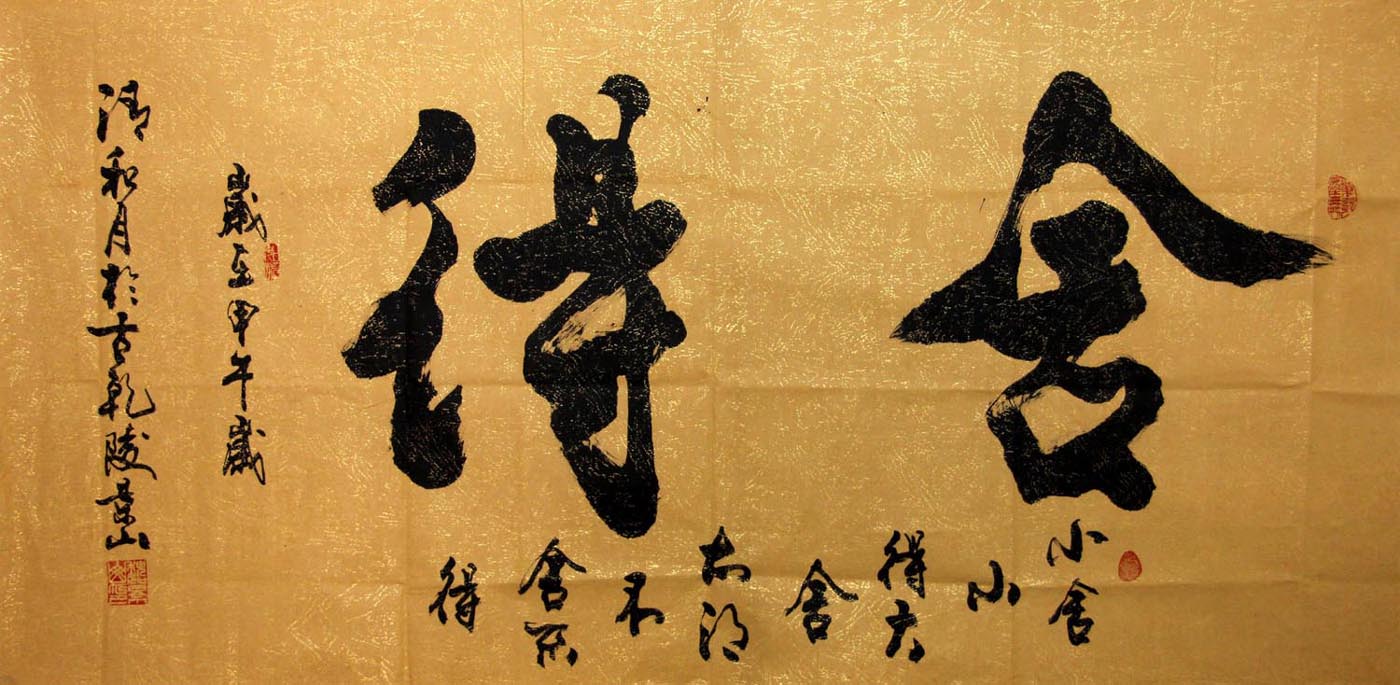 舍得
小舍
小
得大
舍
大得
不
舍不
得
歲在甲午歲
清和月於古乾陵景山